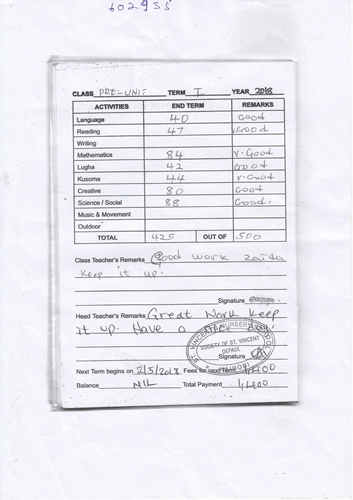 602935
CLASS PRE-UNIT TERM I YEAR 2018
ACTIVITIES END TERM REMARKS
Language 40 Good
Reading 47 V.Good
Writing
Mathematics 84 V.Good
Lugha 42 Good
Kusoma 44 V.Good
Creative 80 Good
Science / Social 88 Good.
Music & Movement
Outdoor
TOTAL 425 OUT OF 500
Class Teacher's Remarks Good work zaida
keep it up.
Signature
Head Teacher's Remarks Great Work keep
it up. Have a
ST. VINCENT NURSERY SCHOOL
SOCIETY OF ST. VINCENT
DEPAUL
NAIROBI
Signature
Next Term begins on 2/5/2018 Fees for next Term 4400
Balance NIL Total Payment 4400